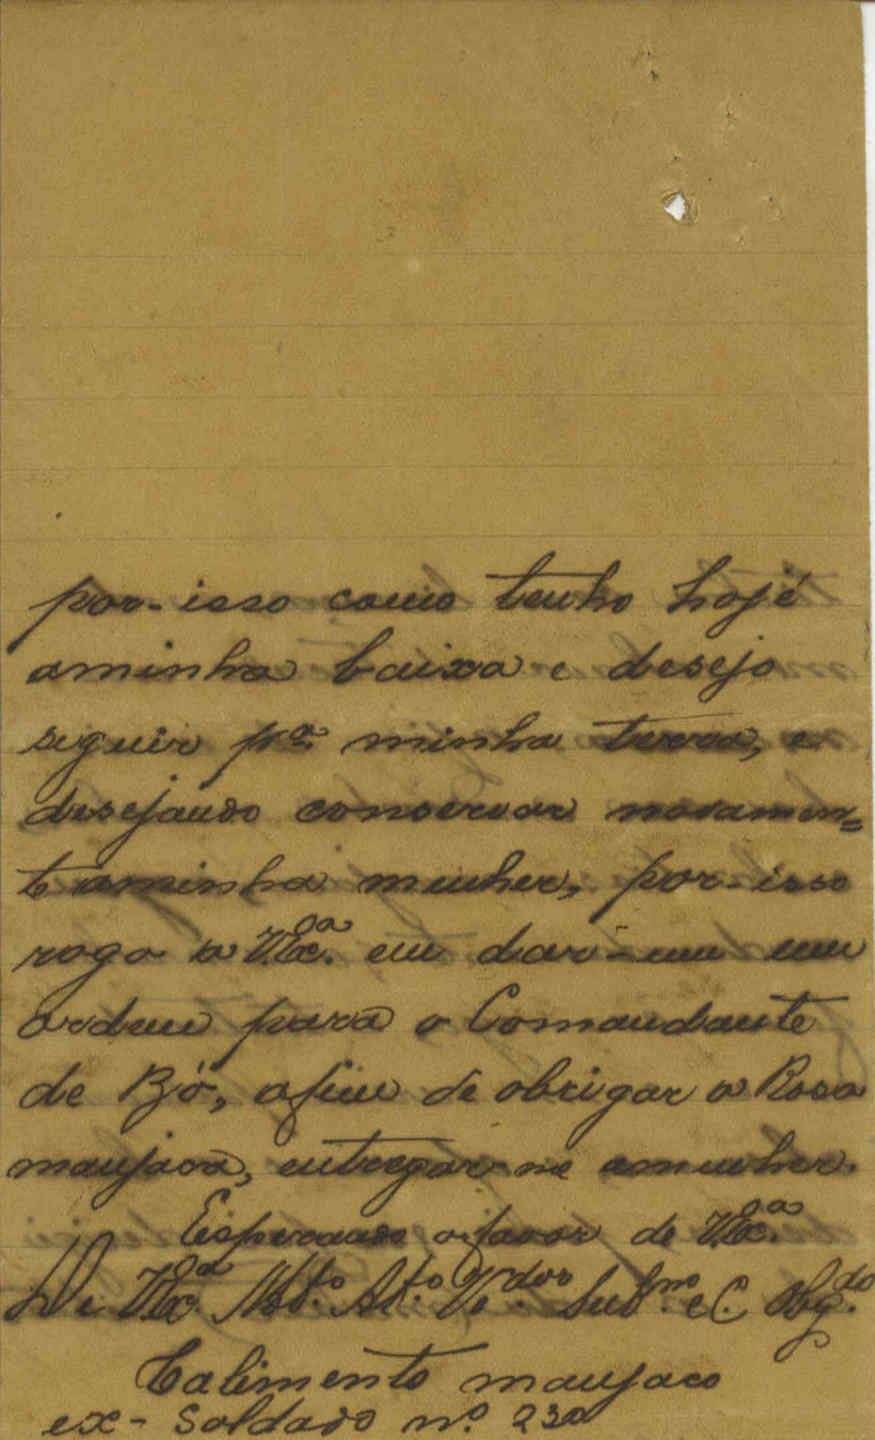 por-isso como tenho hojé
aminha baixa e desejo
seguir pª minha terra, e
desejando conservar novamen=
te aminha mulher, por-isso
rogo a V.Exª. em dar-me um
ordem para o Comandante
de Bó, afim de obrigar a Rosa
manjaca, entregar-me amulher.
Esperando ofavor de V.Exª.
De V.Exª. Mtº. Attº. Vºdor Subno e C. Obgdo.
manjaco
ex-Soldado nº. 230